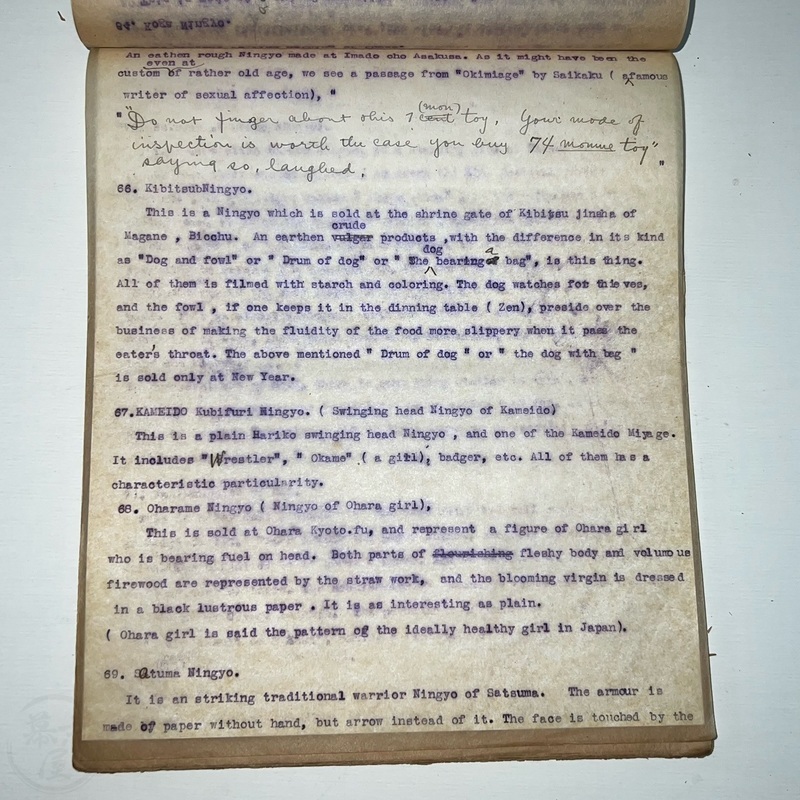 64. Koga Ningyo.
An eathen rough Ningyo made at Imado cho Asakusa. As it might have been the
even at
custom of rather old age, we see a passage from "Okimiage" by Saikaku ( a famous
writer of sexual affection), "
(mon)
"Do not finger about ohis 7 cent toy. Your mode of
inspection is worth the case you buy 74 monme toy"
saying so, laughed. "
66. KibitsubNingyo.
This is a Ningyo which is sold at the shrine gate of Kibitsu jinsha of
crude
Magane , Bicchu. An earthen vulgar products ,with the difference in its kind
dog a
as "Dog and fowl" or " Drum of dog" or " The bearing bag", is this thing.
All of them is filmed with starch and coloring. The dog watches for thieves,
and the fowl , if one keeps it in the dinning table ( Zen), preside over the
business of making the fluidity of the food more slippery when it pass the
eater's throat. The above mentioned " Drum of dog " or " the dog with bag "
is sold only at New Year.
67.KAMEIDO Kubifuri Ningyo. ( Swinging head Ningyo of Kameido)
This is a plain Hariko swinging head Ningyo , and one of the Kameido Miyage.
It includes "Wrestler", " Okame" ( a girl), badger, etc. All of them has a
characteristic particularity.
68. Oharame Ningyo ( Ningyo of Ohara girl),
This is sold at Ohara Kyoto.fu, and represent a figure of Ohara girl
who is bearing fuel on head. Both parts of flourishing fleshy body and volumous
firewood are represented by the straw work, and the blooming virgin is dressed
in a black lustrous paper . It is as interesting as plain.
( Ohara girl is said the pattern of the ideally healthy girl in Japan).
69. Satuma Ningyo.
It is an striking traditional warrior Ningyo of Satsuma. The armour is
made of paper without hand, but arrow instead of it. The face is touched by the